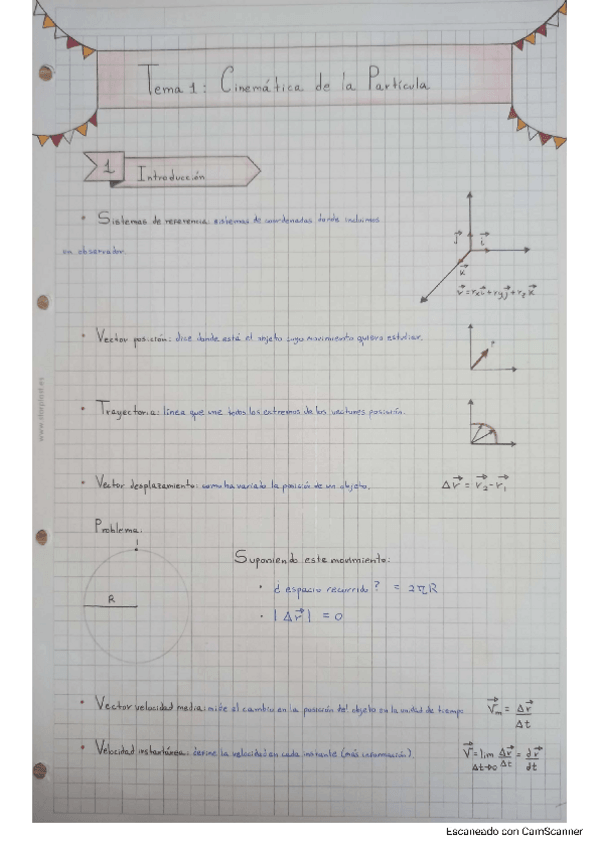 Tema 1: Cinemática de la Partícula
1 Introducción
• Sistemas de referencia: sistemas de coordenadas donde incluimos
un observador.
j i
k
r = rxi + ryj + rzk
• Vector posición: dice donde está el objeto cuyo movimiento quiero estudiar.
r
• Trayectoria: línea que une todos los extremos de los vectores posición.
• Vector desplazamiento: como ha variado la posición de un objeto. Δr = r2 - r1
Problema:
Suponiendo este movimiento:
• ¿espacio recorrido? = 2πR
R
• |Δr| = 0
• Vector velocidad media: mide el cambio en la posición del objeto en la unidad de tiempo Vm = Δr/Δt
• Velocidad instantánea: define la velocidad en cada instante (más información). V = lim Δt→0 Δr/Δt = dr/dt
Escaneado con CamScanner